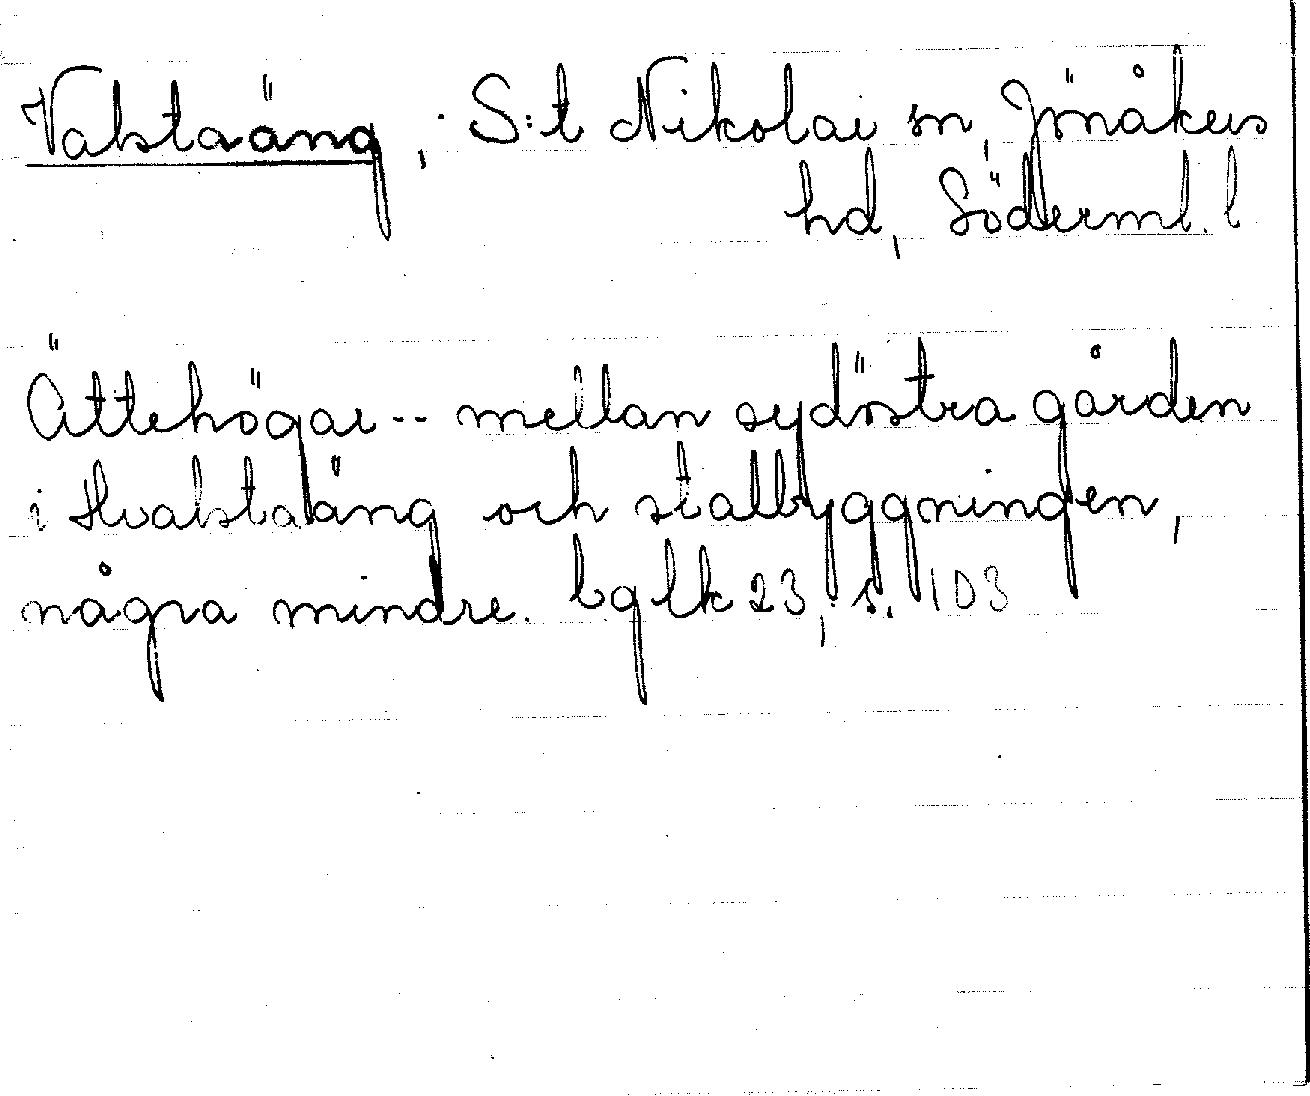 Valstaäng, S:t Nikolai sn, Jönåkers
hd, Söderml. l
Ättehögar -- mellan sydöstra gården
i Hvalstaäng och stallbyggningen,
några mindre. bglk 23, s. 103